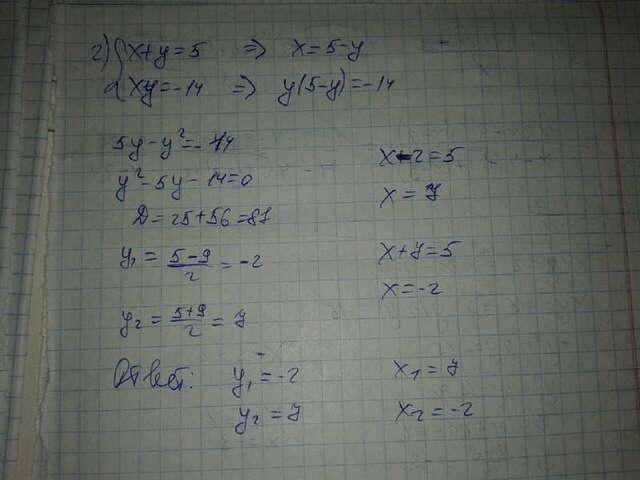 г) { x+y=5 => x=5-y
xy=-14 => y(5-y)=-14
5y-y²=-14
y²-5y-14=0
D=25+56=81
y₁ = (5-9)/2 = -2
y₂ = (5+9)/2 = 7
x-2=5
x=7
x+7=5
x=-2
Ответ: y₁=-2 x₁=7
y₂=7 x₂=-2